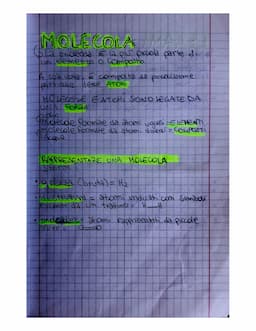 MOLECOLA
La molecola è la più piccola parte di
un elemento o composto
A sua volta, è composta da piccolissime
particelle, dette ATOMI
MOLECOLE E ATOMI SONO LEGATE DA
UNA FORZA
molecole formate da atomi uguali = ELEMENTI
molecole formate da atomi diversi = COMPOSTI
Acqua
RAPPRESENTARE UNA MOLECOLA
(bruta) = H₂
= atomi indicati con simboli
da un trattino = H—H
= atomi rappresentati da piccole